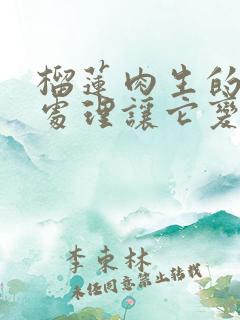 榴蓮肉生的
處理讓它變
李東林
未任同意禁止转载